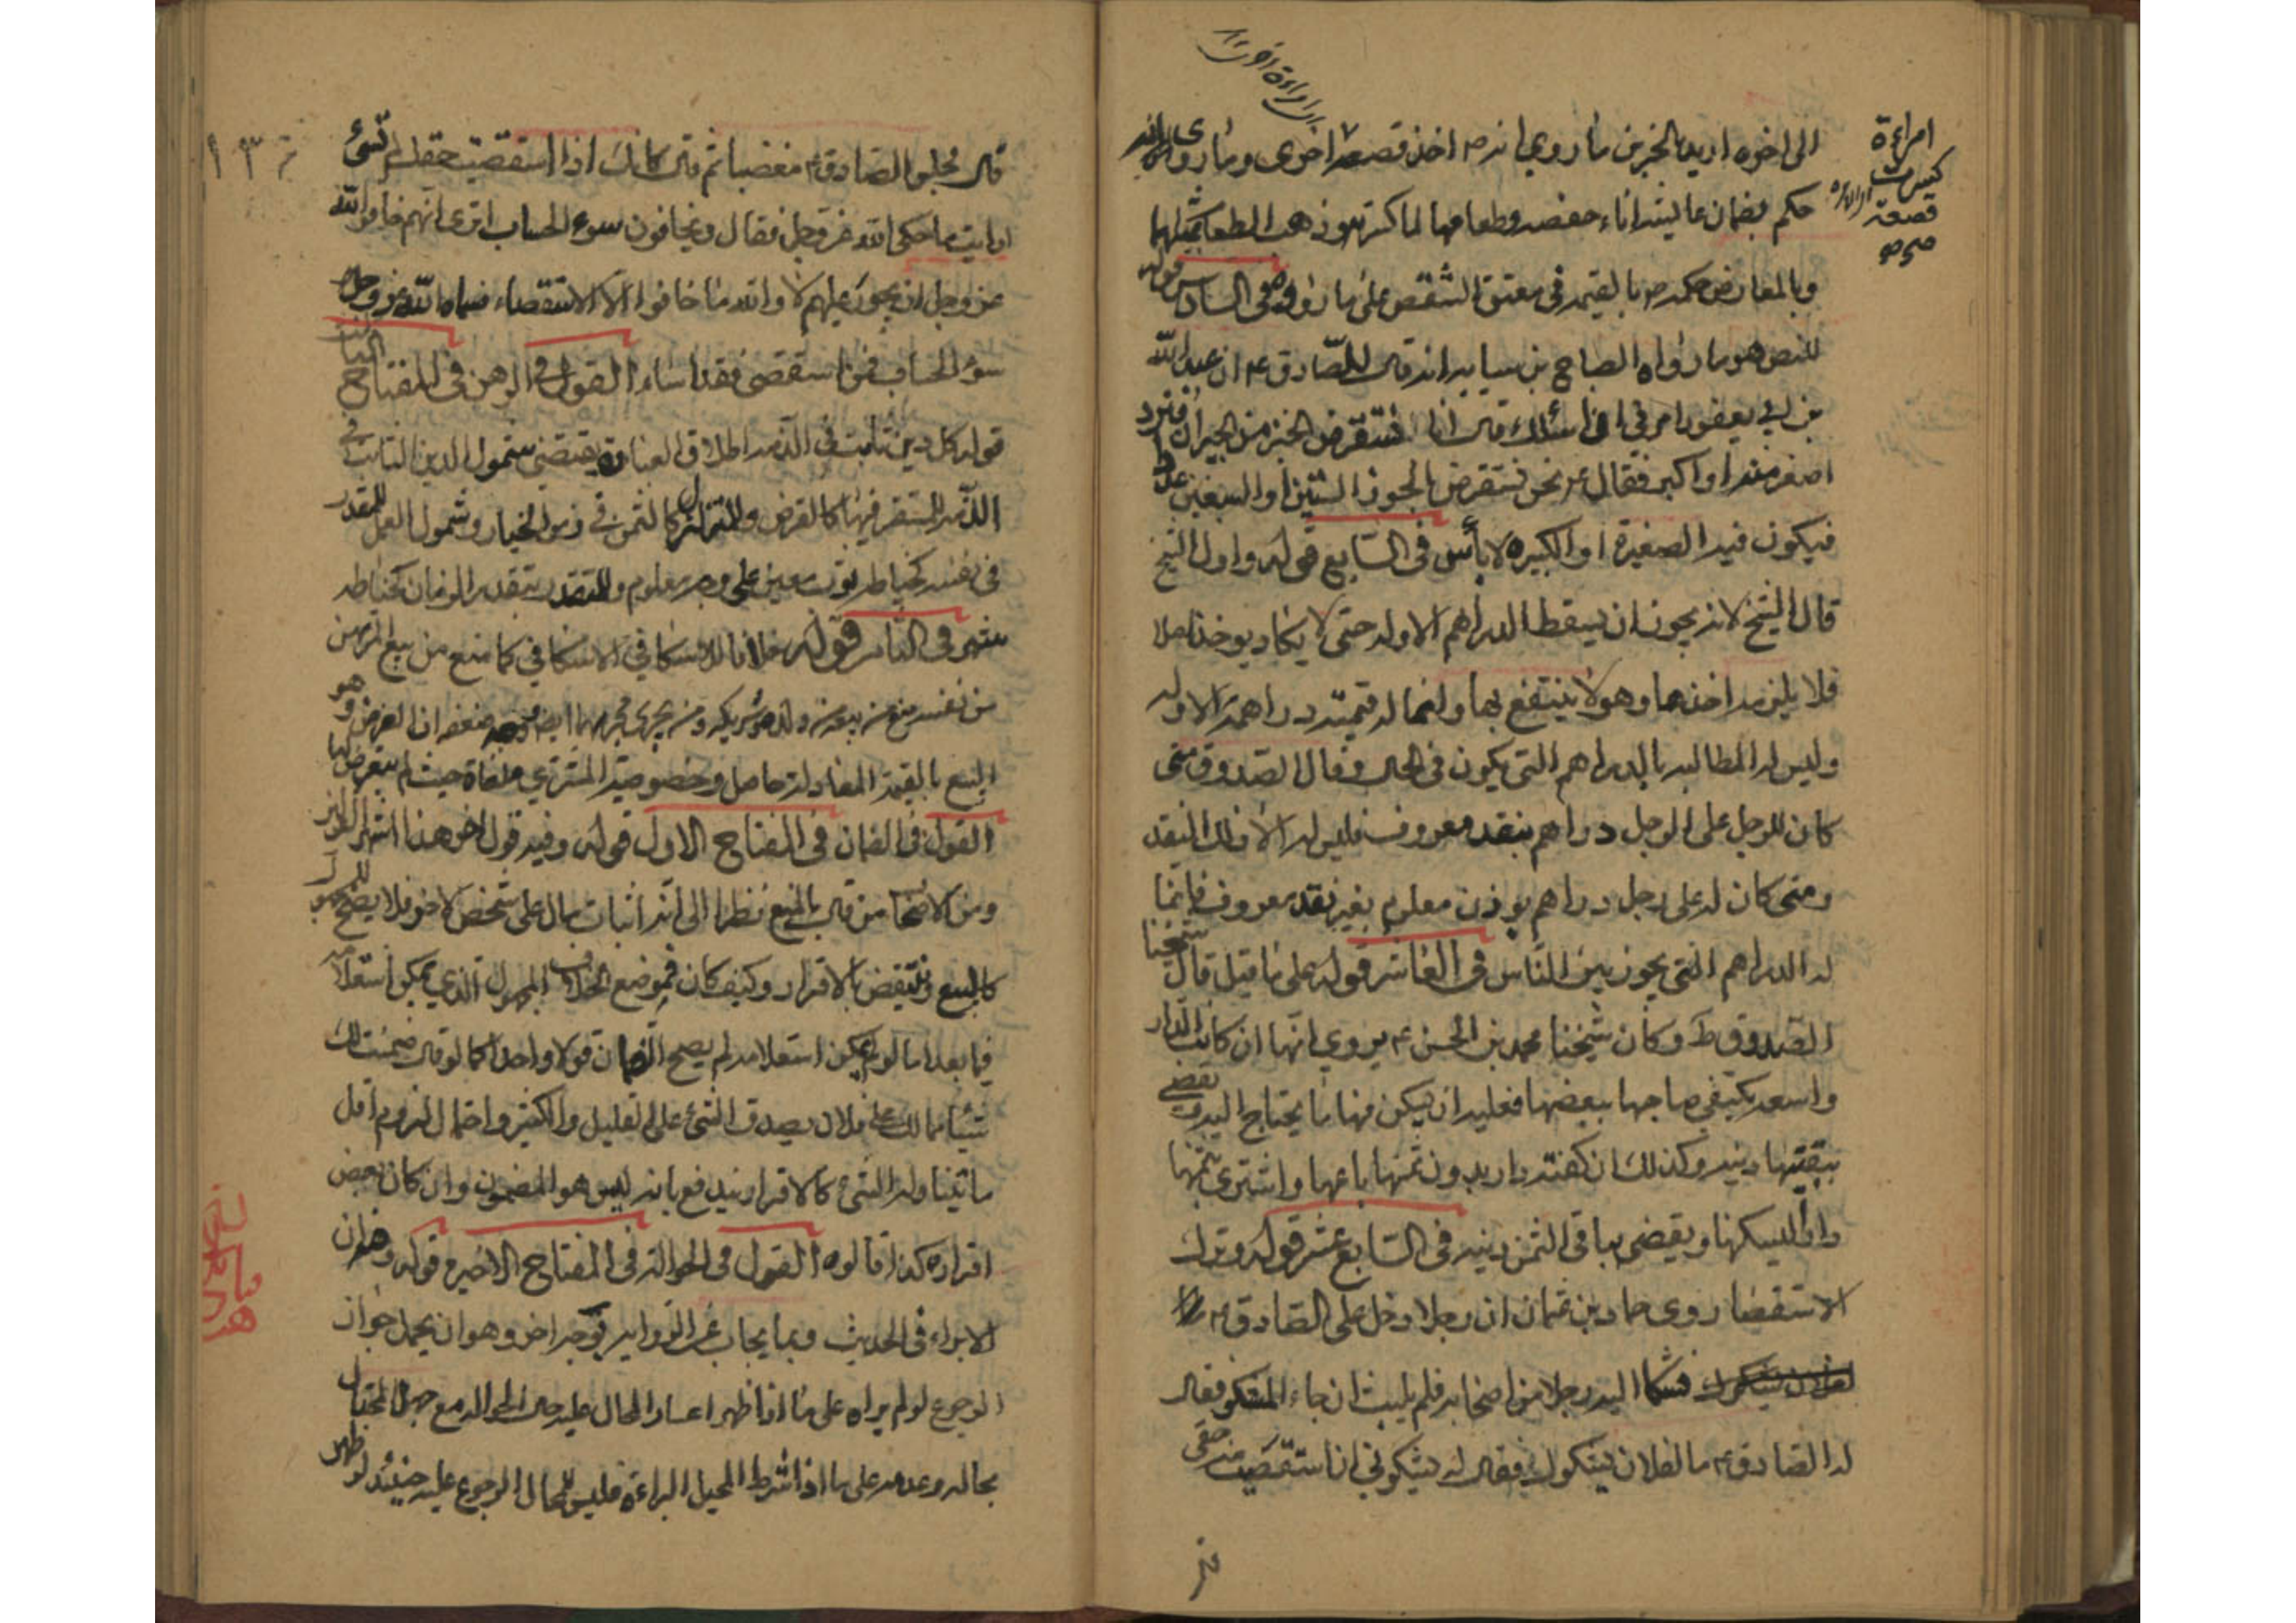 الى اخره اريد بالخبرين ما روي انه ص اخذ قصعة اخرى وما روى انه
امراءة كسرت قصعة اخرى
حكم بضمان عايشه اناء حفصه وطعامها لما كسرته وذهب الطعام بمثلهما
وبالمعارض حكمه ص بالقيمة في معتق الشقص على ما رووه في السادس قوله
للنص هو ما رواه الصباح بن سيابه انه قال للصادق ع ان عبد الله
بن ابي يعفور امرني ان اسئلك قال انا نستقرض الخبز من الجيران فنرد
اصغر منه او اكبر فقال ع نحن نستقرض الجوز الستين او السبعين عددا
فيكون فيه الصغيرة او الكبيره لا بأس في السابع قوله واول الشيخ
قال الشيخ لانه يجوز ان يسقط الدراهم الاوله حتى لا يكاد يوخذ اصلا
فلا يلزمه اخذها وهو لا ينتفع بها وانما له قيمة دراهمه الاوله
وليس له المطالبه بالدراهم التي يكون في الحال وقال الصدوق متى
كان للرجل على الرجل دراهم بنقد معروف فليس له الا ذلك النقد
ومتى كان له على رجل دراهم بوزن معلوم بغير نقد معروف فانما
له الدراهم التي يجوز بين الناس في العاشر قوله على ما قيل قال شيخنا
الصدوق ط وكان شيخنا محمد بن الحسن ع يروي انها ان كانت الدار
واسعه يكتفي صاحبها ببعضها فعليه ان يسكن منها ما يحتاج اليه ويقضي
ببقيتها دينه وكذلك ان كفته دار بدون ثمنها باعها واشترى بثمنها
دارا ليسكنها ويقضي بباقي الثمن دينه في السابع عشر قوله وترك
الاستقضا روى حماد بن عثمان ان رجلا دخل على الصادق ع
فشكا اليه رجلا من اصحابه فلم يلبث ان جاء المشكو فقال
له الصادق ع ما لفلان يشكوك فقال له يشكوني اني استقضيت منه حقي
١٣٤
قال فجلس الصادق ع مغضبا ثم قال كانك اذا استقضيت حقك لم تسئ
ارايت ما حكى الله عز وجل فقال ويخافون سوء الحساب اترى انهم خافوا الله
عز وجل ان يجور عليهم لا والله ما خافوا الا الاستقصاء فسماه الله عز وجل
سوء الحساب فمن استقصى فقد اساء القول في الرهن في المفتاح
قوله كل دين ثابت في الذمه اطلاق العبارة يقتضي شمول الدين الثابت في
الذمه المستقر فيها كالقرض والمتزلزل كالثمن في زمن الخيار وشمول العمل المقدر
في نفسه كخياطه ثوب معين على وجه معلوم والمتقدر بتقدير الزمان كخياطه
شهر في الثامن قوله خلافا للاسكافي الاسكافي كما منع من بيع المرتهن
من نفسه منع من بيعه من ولده وشريكه ومن يجري مجراهما ايضا ووجه ضعفه ان الغرض وهو
البيع بالقيمة المعادلة حاصل وخصوصية المشتري ملغاة حيث لم يتعرض لها
القول في الضمان في المفتاح الاول قوله وفيه قول اخر هذا اشهر
ومن الاصحاب من قال بالمنع نظرا الى انه اثبات مال على شخص لاخر فلا يصح
كالبيع وينتقض بالاقرار وكيف كان فموضع الخلاف المجهول الذي يمكن استعلامه
فيما بعد اما لو لم يمكن استعلامه لم يصح الضمان قولا واحدا كما لو قال ضمنت لك
شيئا مما لك على فلان يصدق الشئ على القليل والكثير واحتمال لزوم اقل
ما تناوله الشئ كالاقرار يندفع بانه ليس هو المضمون وان كان بعض
افراده كذا قالوه القول في الحوالة في المفتاح الاخير قوله
الابراء في الحديث وبما يجاب عن الرواية بوجه اخر وهو ان يحمل جواز
الرجوع لو لم يبراه على ما اذا ظهر اعسار المحال عليه حال الحواله مع جهل المحتال
بحاله وعدمه على ما اذا شرط المحيل البراءة فليس للمحال الرجوع عليه حينئذ لو ظهر